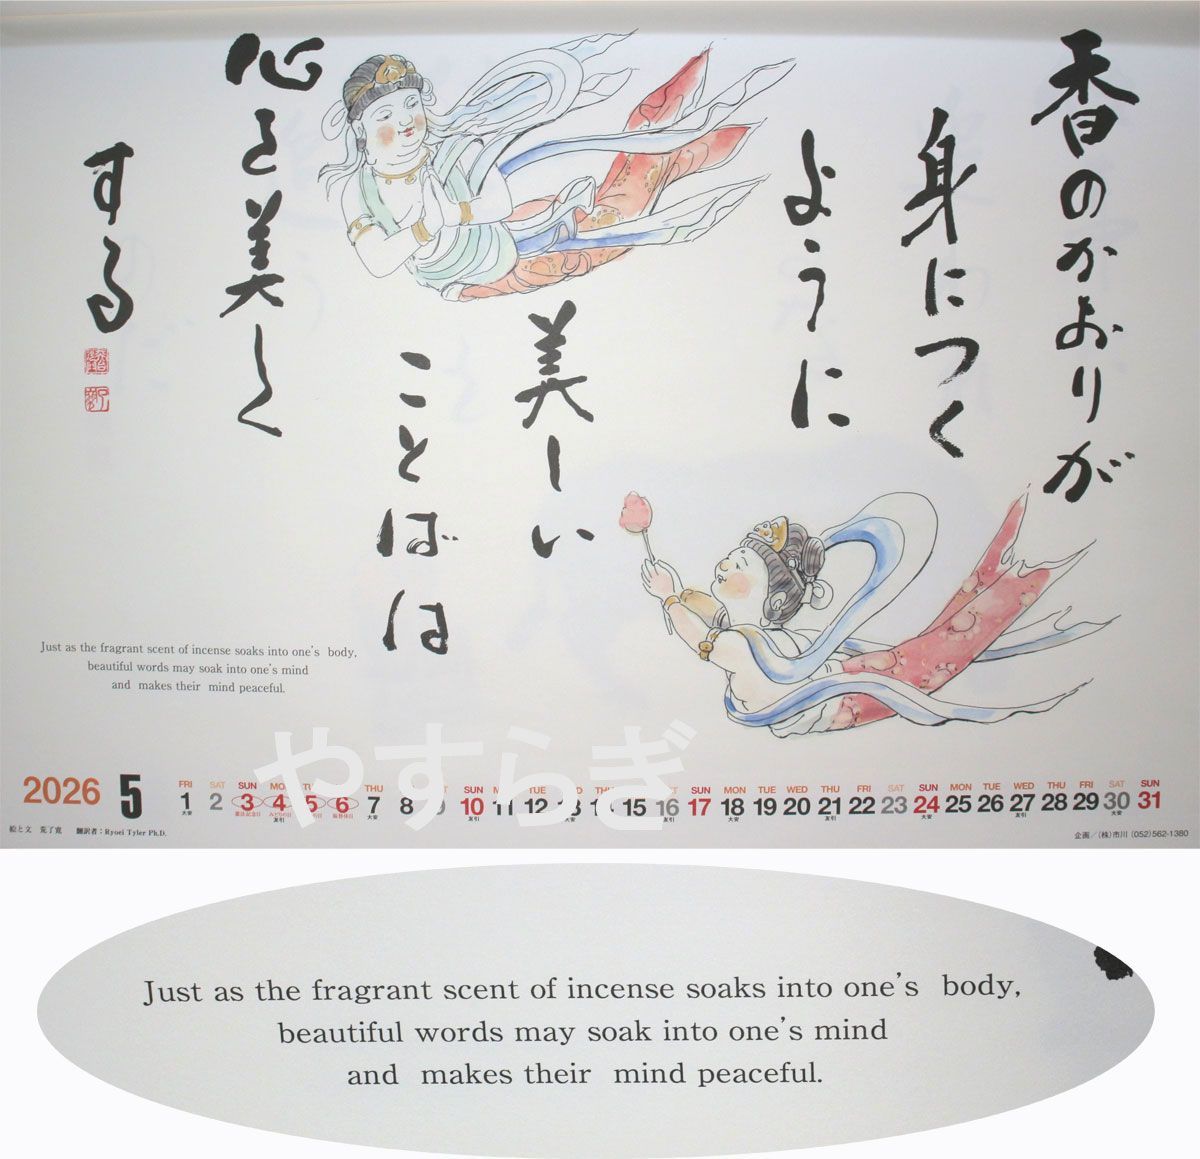 香のかおりが
身につく
ように
美しい
ことばは
心を美しく
する
Just as the fragrant scent of incense soaks into one's body,
beautiful words may soak into one's mind
and makes their mind peaceful.
やすらぎ
2026 5
FRI SAT SUN MON TUE THU SUN MON TUE WED THU FRI SAT SUN MON TUE WED THU FRI SAT SUN MON TUE WED THU FRI SAT SUN
1 2 3 4 5 6 7 8 9 10 11 12 13 14 15 16 17 18 19 20 21 22 23 24 25 26 27 28 29 30 31
大安 憲法記念日 みどりの日 振替休日 大安 友引 大安 友引 大安 友引 大安 友引 大安
絵と文 荒了寛 翻訳者:Ryoei Tyler Ph.D.
企画/(株)市川 (052)562-1380
Just as the fragrant scent of incense soaks into one's body,
beautiful words may soak into one's mind
and makes their mind peaceful.